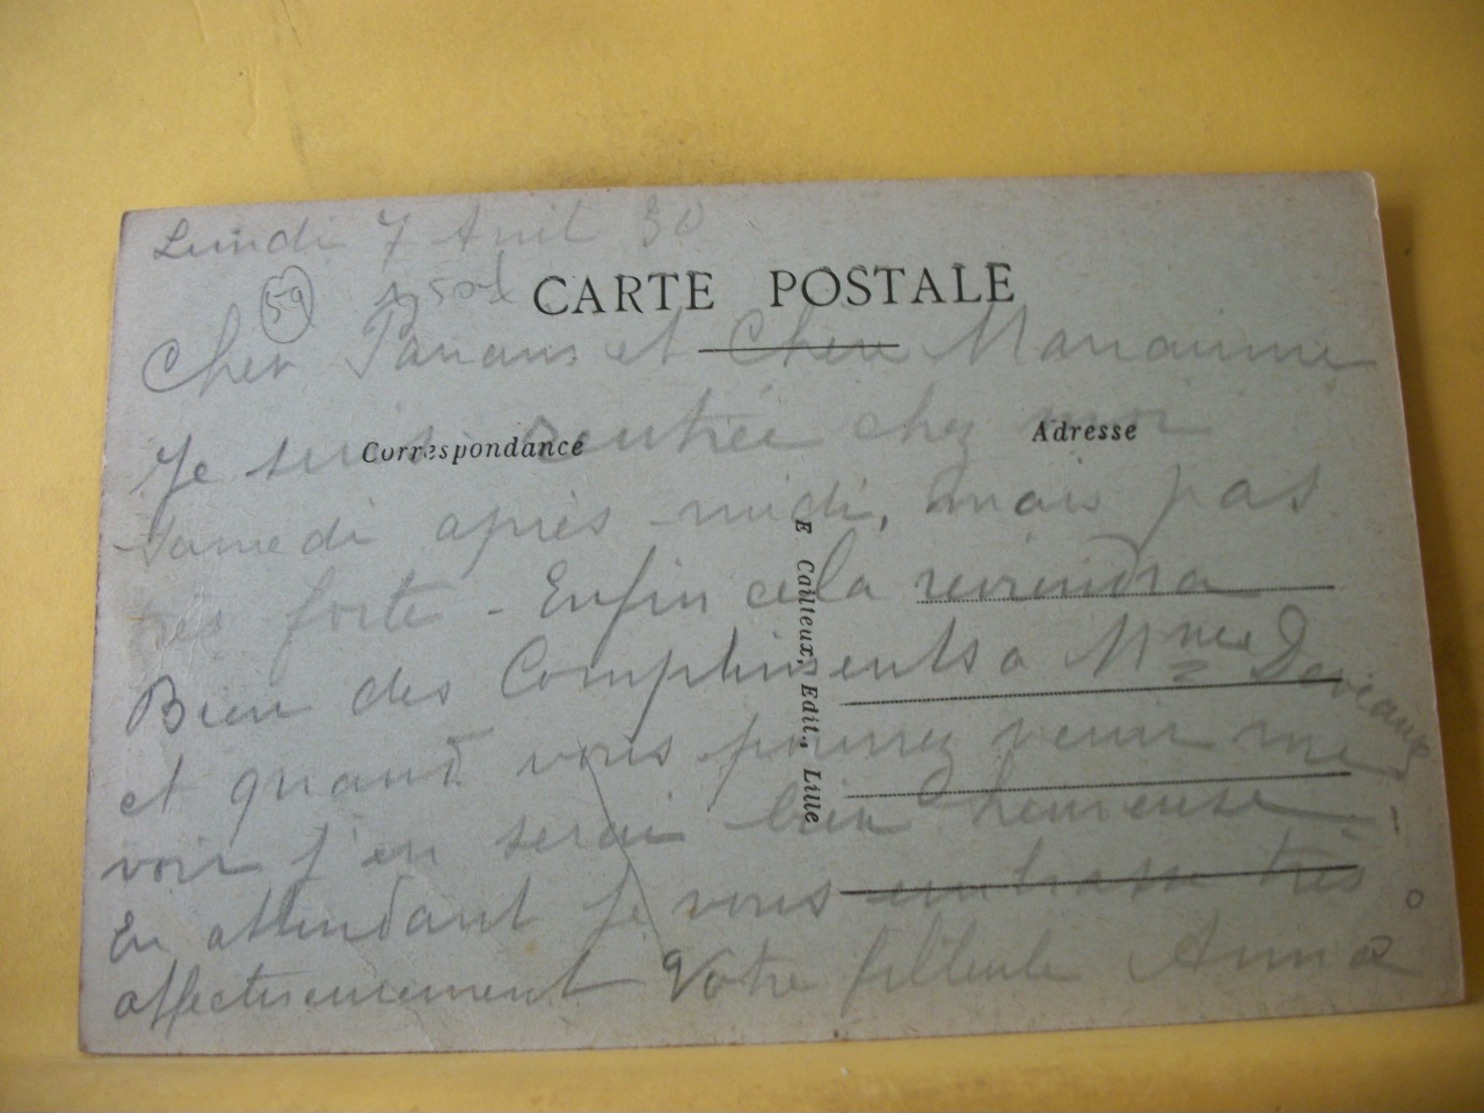 Lundi 7 Avril 30
59
CARTE POSTALE
Cher Parrain et Chère Marraine
Je suis rentrée chez moi
Correspondance
Adresse
Samedi après-midi, mais pas
très forte - Enfin cela reviendra
Bien des Compliments a Mme
et quand vous pourrez venir me
voir j'en serai bien heureuse
En attendant je vous embrasse très
affectueusement Votre filleule Anna
E Cailteux, Edit., Lille